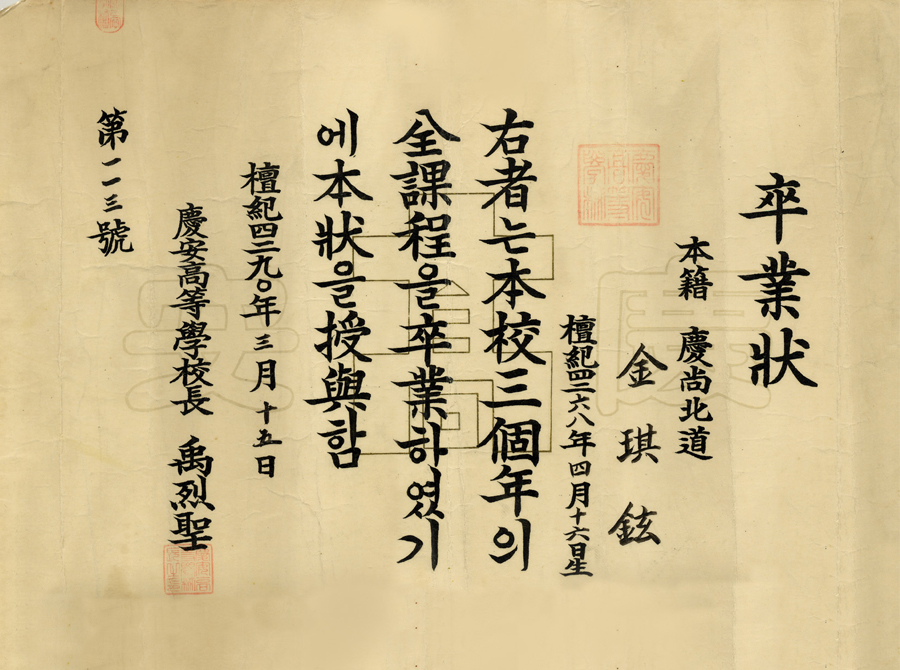 卒業狀
本籍 慶尚北道
金琪鉉
檀紀四二六八年四月十六日生
右者는本校三個年의
全課程을卒業하였기
에本狀을授與함
檀紀四二九〇年三月十五日
慶安高等學校長 禹烈聖
第一一三號
慶 高 安